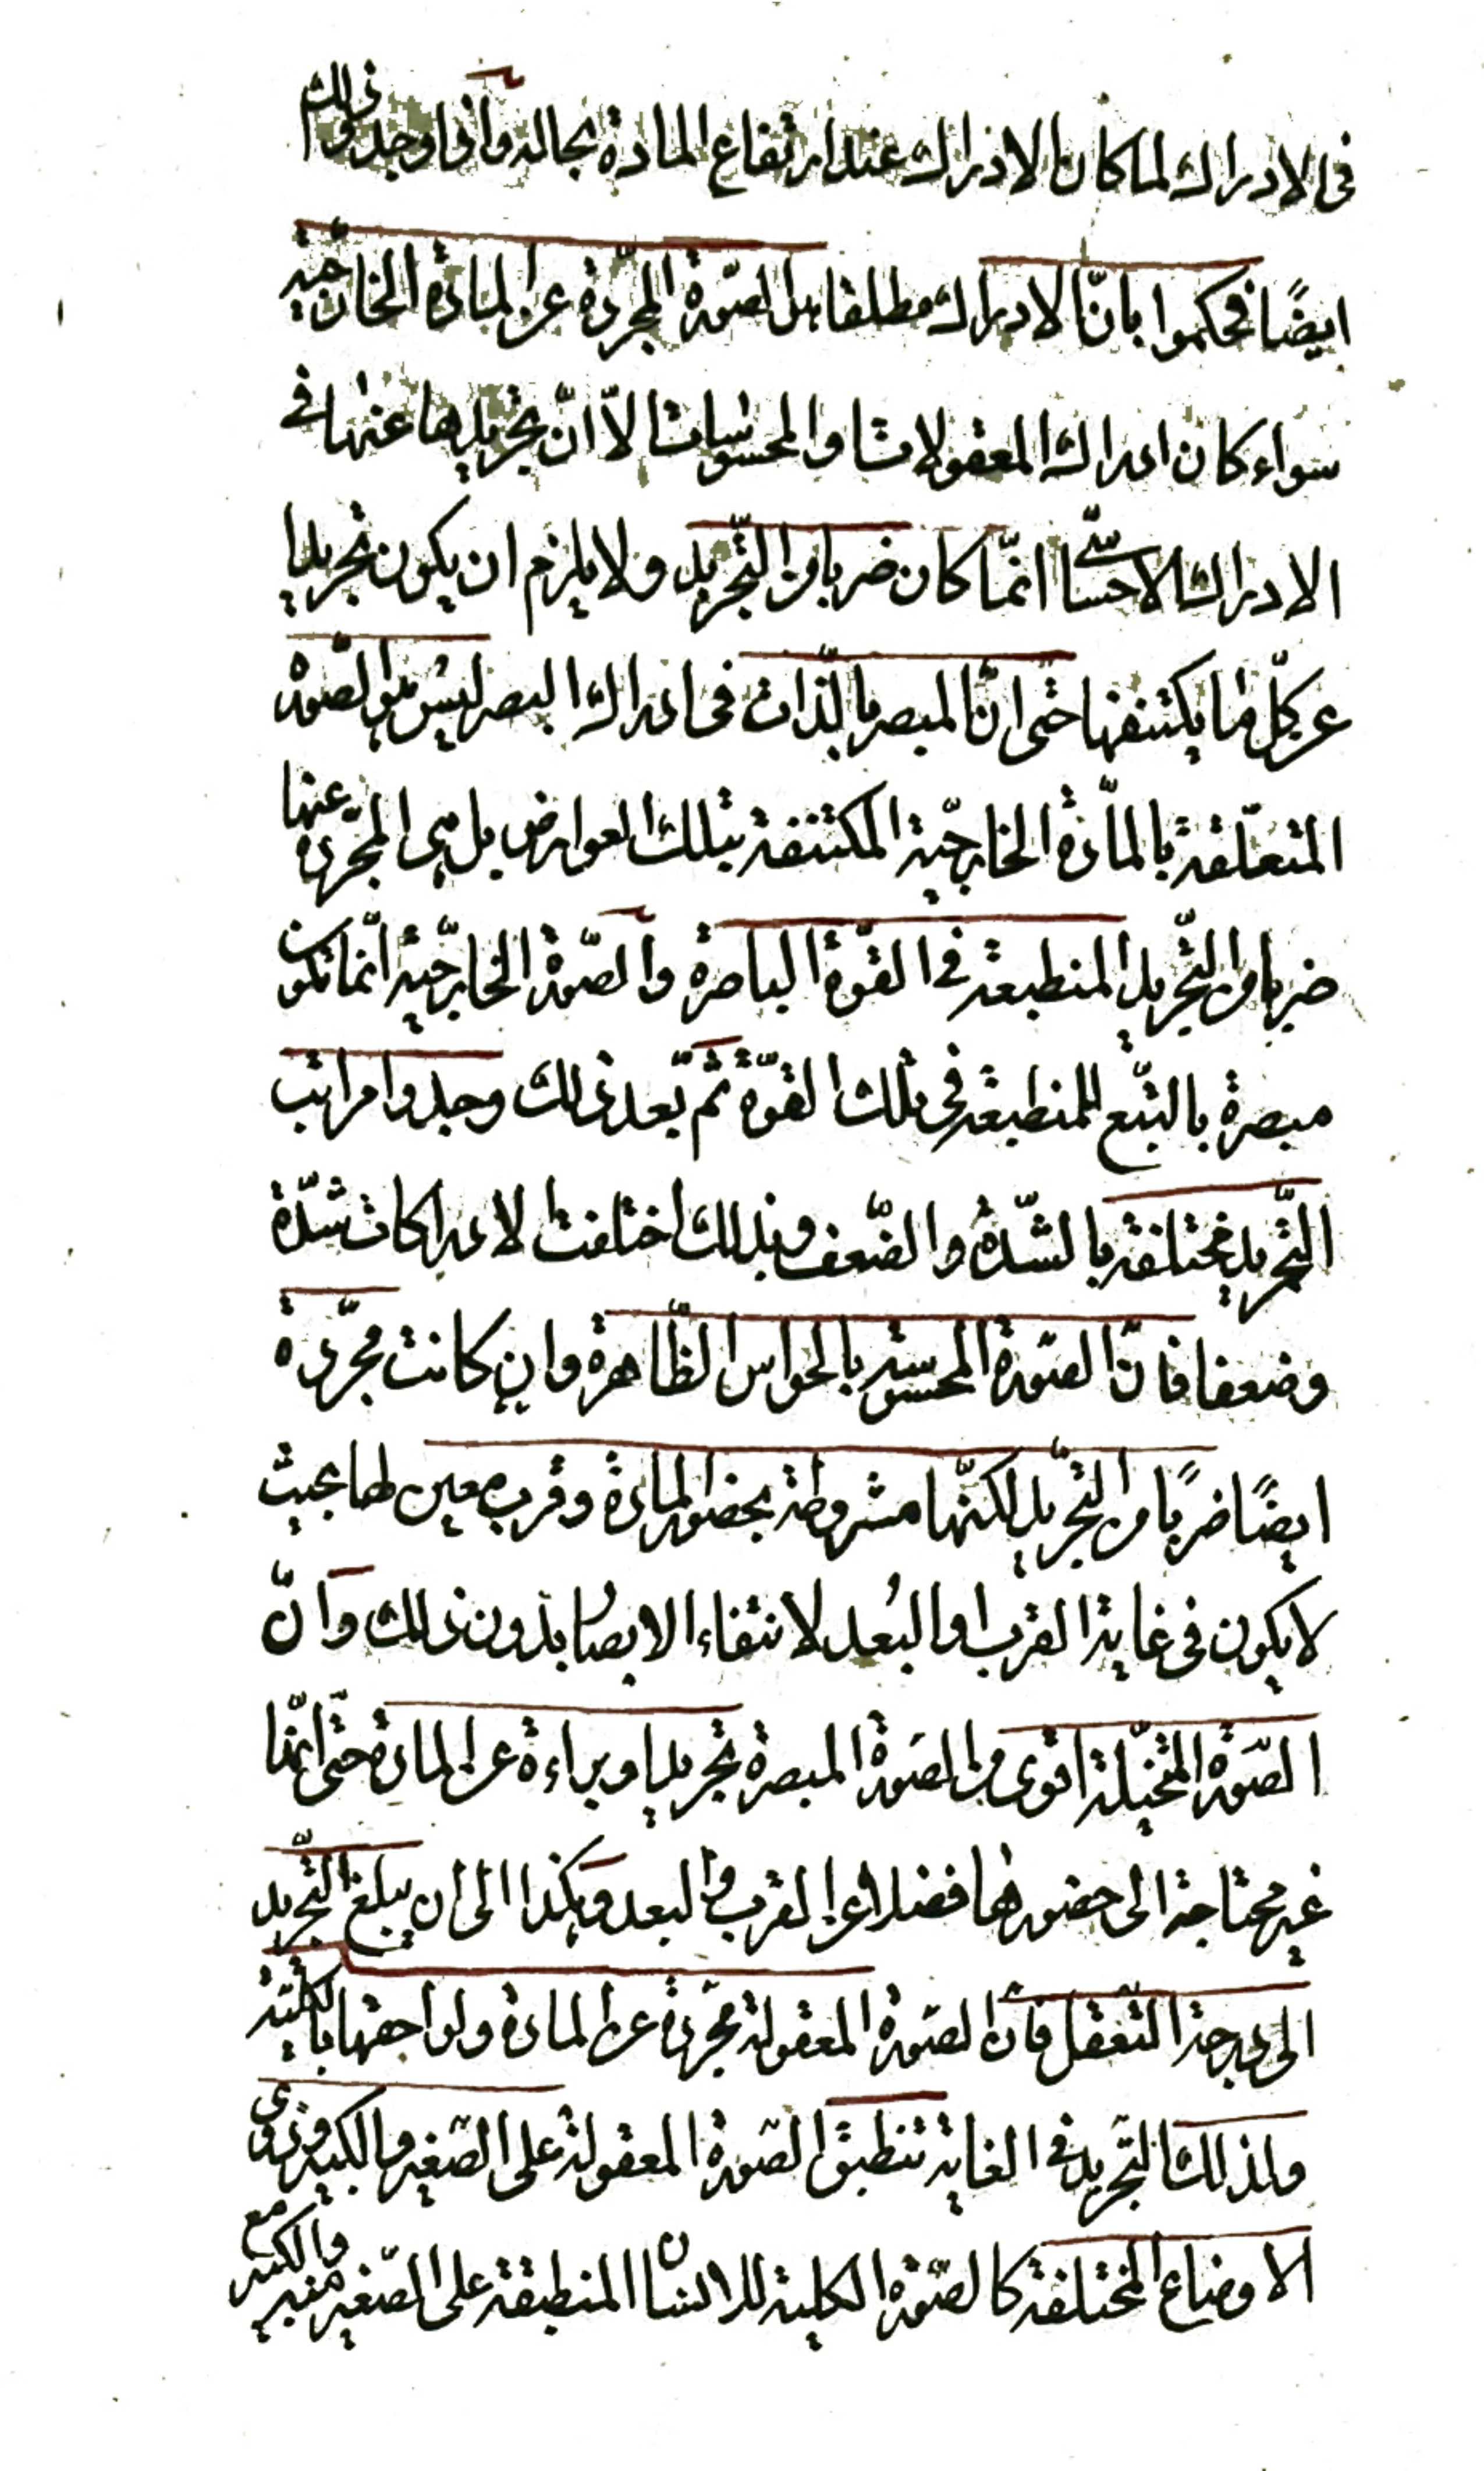 فى الادراك لما كان الادراك عند ارتفاع المادة بحاله واذا وجدوا ذلك
ايضًا فحكموا بانّ الادراك مطلقا بل الصّورة المجرّدة عن المادة الخارجيّة
سواء كان ادراك المعقولات او المحسوسات الاّ انّ تجريدها عنها فى
الادراك الاحساسىّ انمّا كان ضربا من التّجريد ولا يلزم ان يكون تجريدا
عن كلّ ما يكتنفها حتى انّ المبصر بالذّات فى ادراك البصر ليس هو الصّورة
المتعلّقة بالمادّة الخارجيّة المكتنفة بتلك العوارض بل هى المجرّدة عنها
ضربا من التّجريد المنطبعة فى القوّة الباصرة والصّورة الخارجيّة انّما تكون
مبصرة بالتبّع للمنطبعة فى تلك القوّة ثمّ بعد ذلك وجدوا مراتب
التّجريد مختلفة بالشّدّة والضّعف وبذلك اختلفت الادراكات شدّة
وضعفا فانّ الصّورة المحسوسة بالحواس الظّاهرة وان كانت مجرّدة
ايضًا ضربًا من التجّريد لكنّها مشروطة بحضور المادة وقرب معين لها بحيث
لا يكون فى غاية القرب او البُعد لانتفاء الابصار بدون ذلك وانّ
الصّورة المتخيّلة اقوى من الصّورة المبصرة تجريدا وبراءة عن المادة حتّى انّها
غير محتاجة الى حضورها فضلا عن القرب والبعد وهكذا الى ان يبلغ التّجريد
الى درجة التّعقل فانّ الصّورة المعقولة مجرّدة عن المادة ولواحقها بالكليّة
ولذلك التّجريد فى الغاية تنطبق الصّورة المعقولة على الصّغير والكبير وذوى
الاوضاع المختلفة كالصّورة الكلية للانسان المنطبقة على الصّغير منه والكبير مع